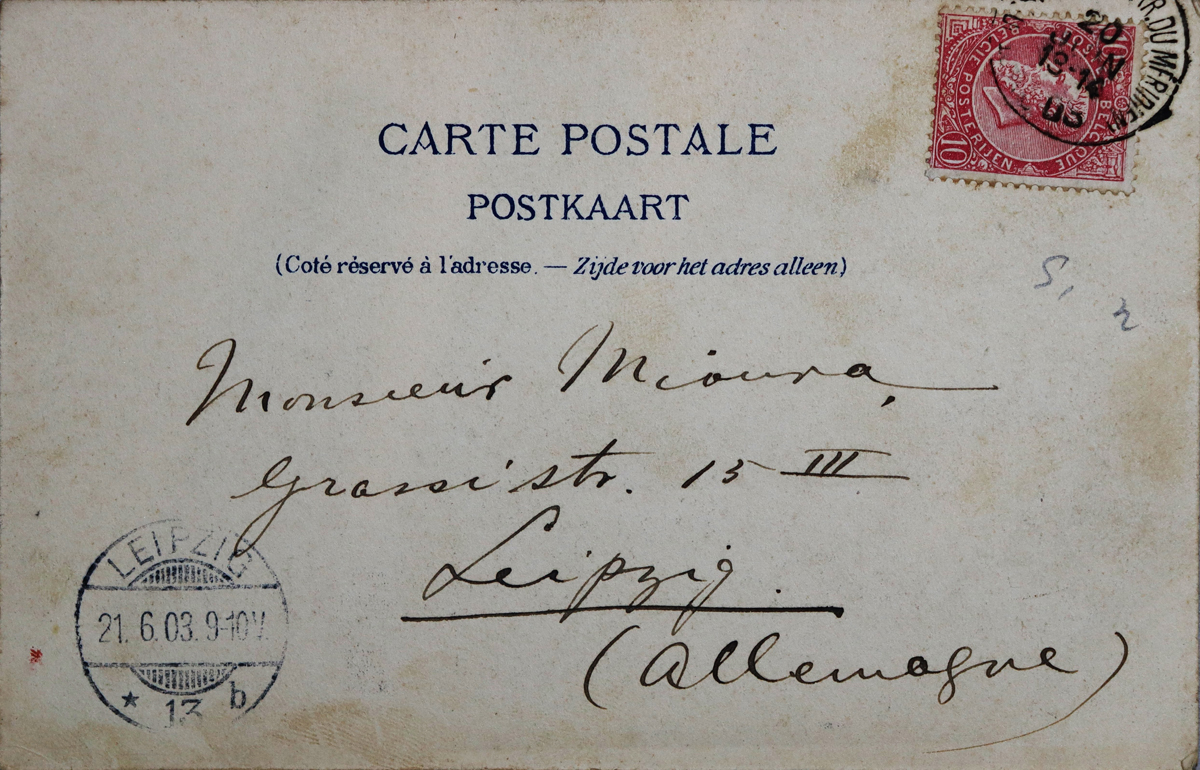 CARTE POSTALE
POSTKAART
(Coté réservé à l'adresse. — Zijde voor het adres alleen)
Monsieur Mioura,
Grassistr. 15 III
Leipzig.
(Allemagne)
LEIPZIG
21. 6. 03. 9-10V.
* 13 b
10
BELGIE POSTERIJEN
BELGIQUE
10
20
JUIN
03
DU MERIDIEN
S,